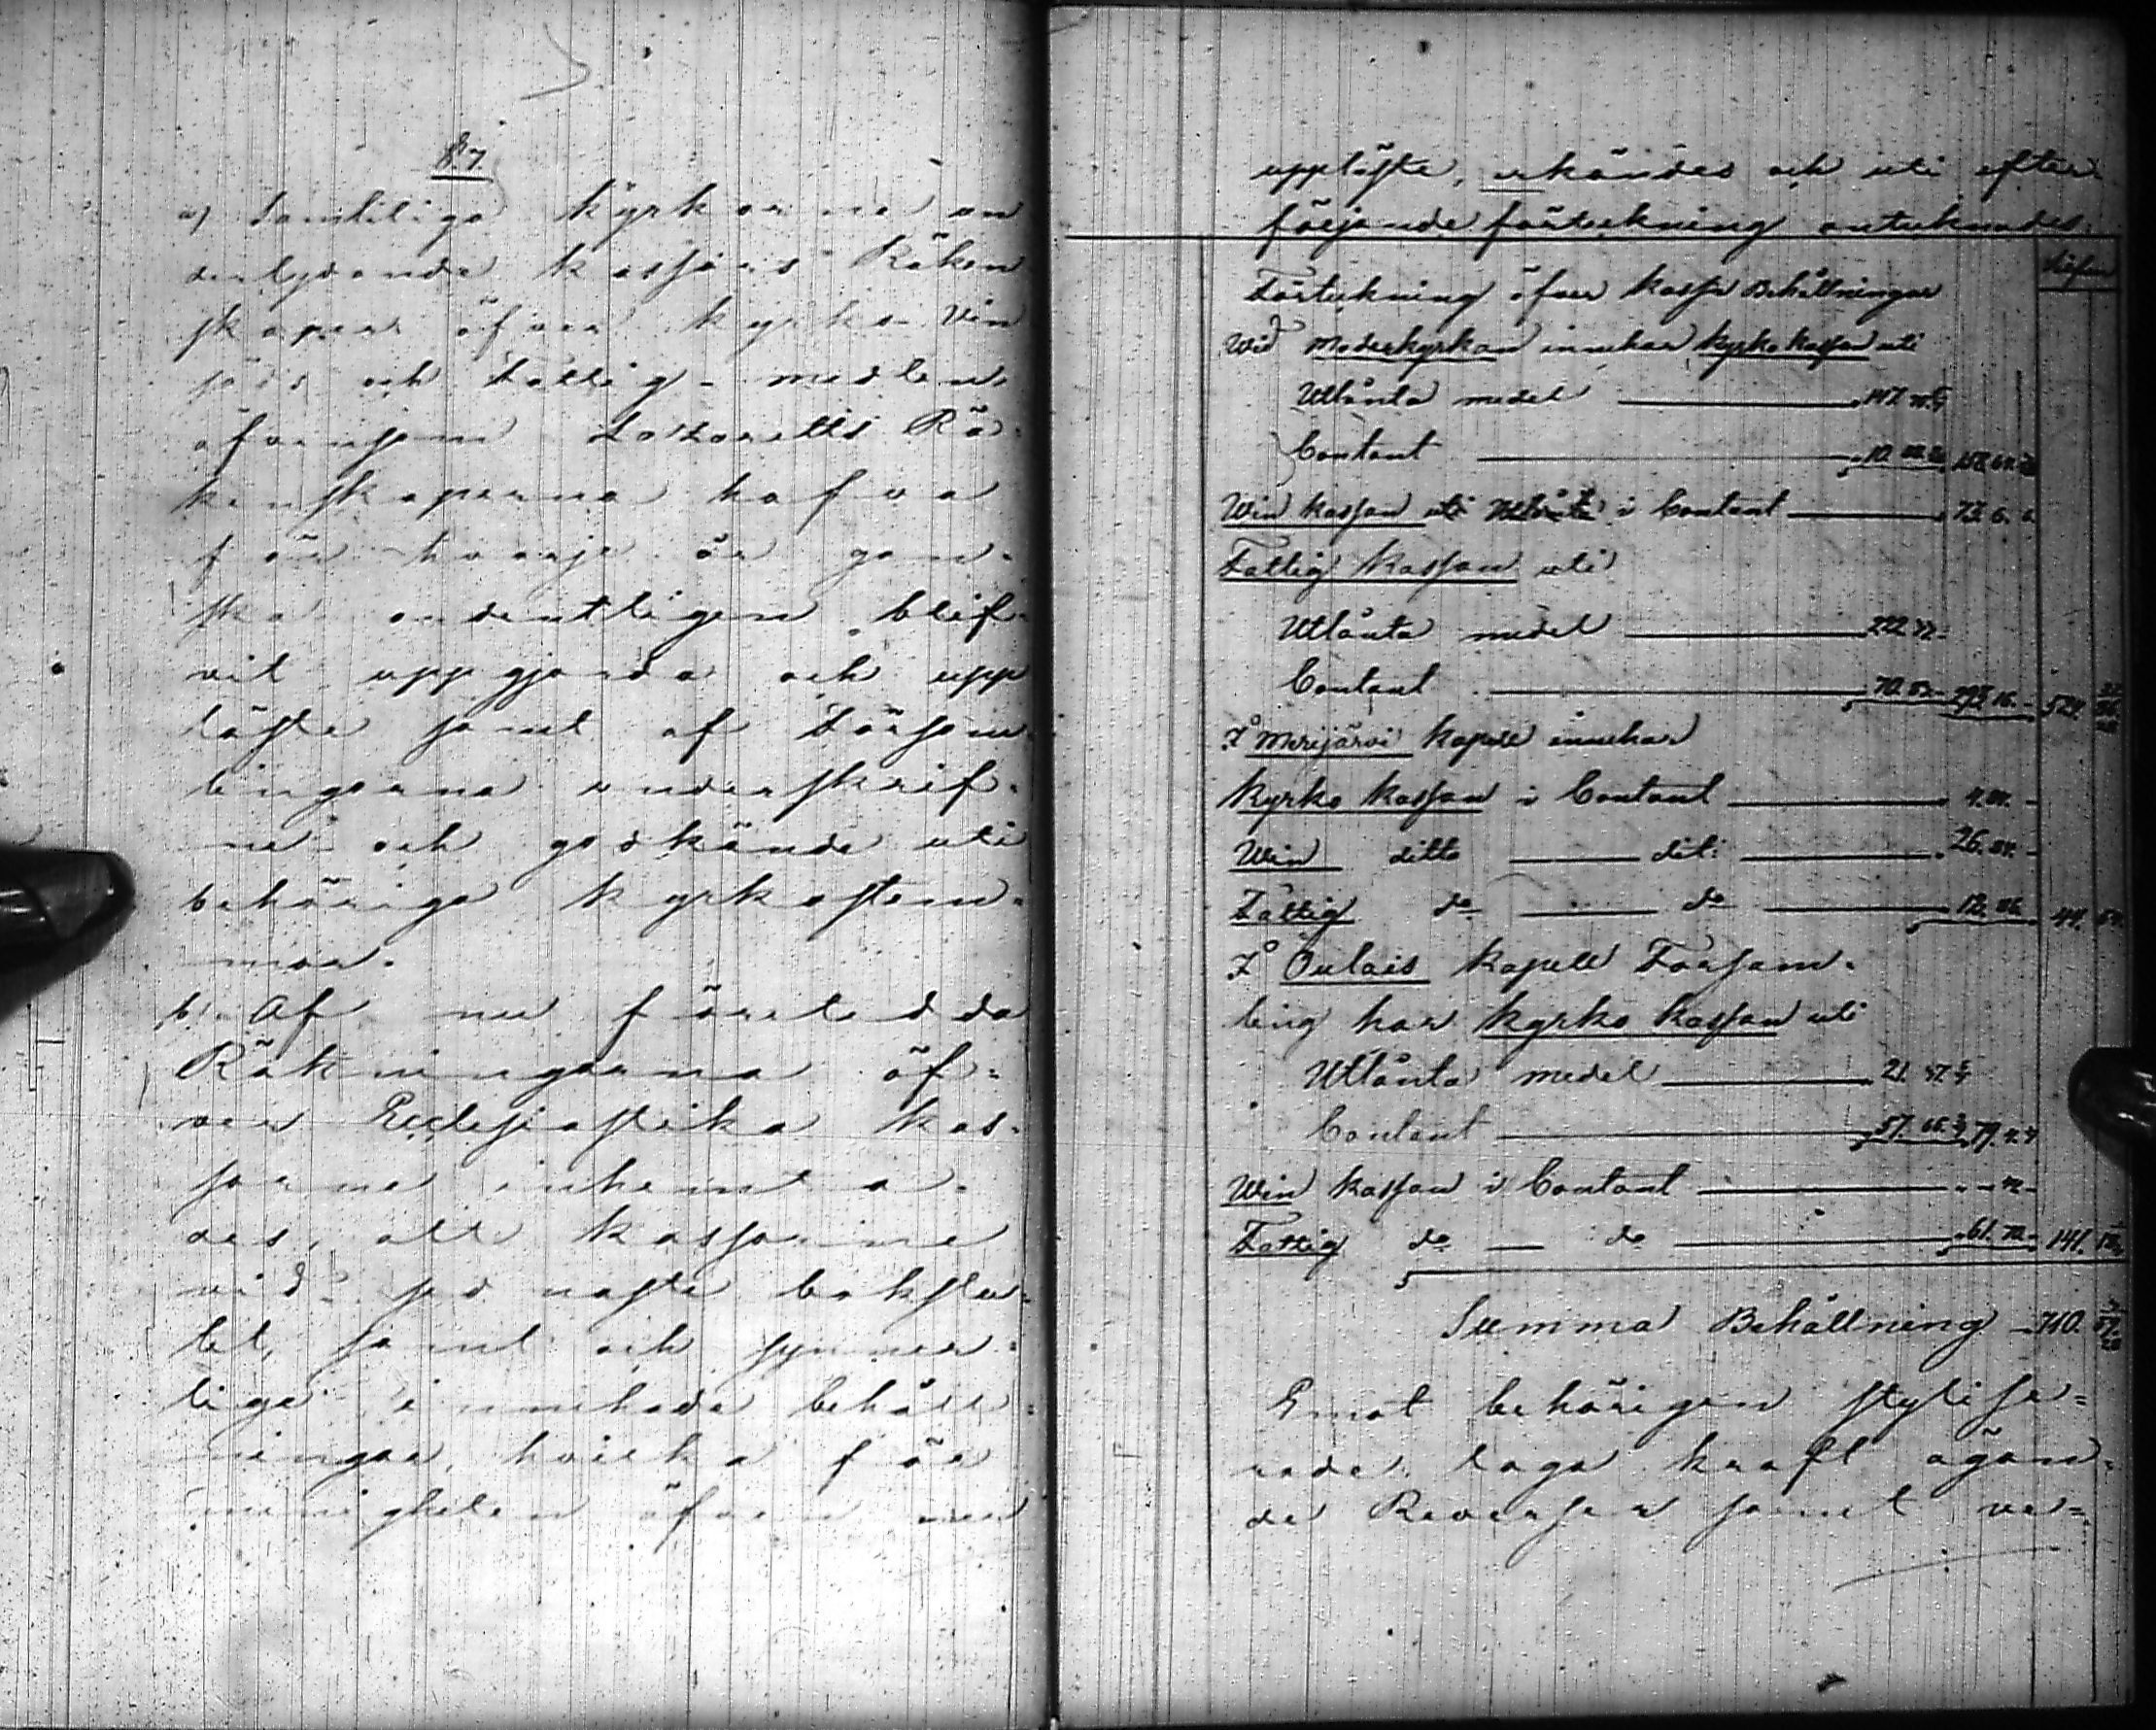 § 7.
a) Samteliga Kyrkorne un
derlydande kassors Räken
skaper öfver kyrko- Vin
och Fattig- medlen
äfvensom Lazaretts Rä-
kenskaperna hafva
för hvarje år gan-
ska ordentligen blif-
vit uppgjorda och upp
läste samt af Försam
lingarna underskrif-
ne och godkände uti
behörige kyrkostem-
mor.
b). Af nu företedda
Räkningarna öf-
ver Ecclesiastika kas-
sorne inhemta-
des, att kassorne
vid sednaste bokslu-
tet, samt och synner-
liga innehade behåll-
ningar, hvilka för
menigheten äfven
uppläste, erkändes och uti efter
följande förteckning antecknades.
Silfver
Förteckning öfver kassa Behållningar
Wid Moderkyrkan innehar kyrko kassan uti
Utlånta medel 147.
Contant 10. 158.
Win kassan uti i Contant 72. 6.
Fattig kassan uti
Utlånta medel 222.
Contant 70. 293. 16. 524.
I Merijärvi kapell innehar
Kyrko kassan i Contant 4.
Win ditto dit: 26.
Fattig do do 12. 44.
I Oulais kapell Försam-
ling har kyrko kassan uti
Utlånta medel 21.
Contant 57. 79.
Win kassan i Contant
Fattig do do 61. 141.
Summa Behållning 710.
Emot behörigen stylise=
rade, laga kraft ägan=
de Reverser samt ve=